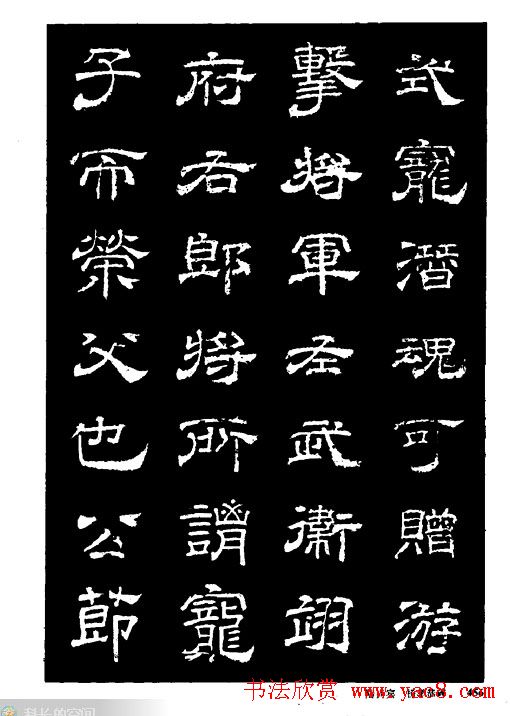 式寵潛魂可贈游
擊將軍左武衛翊
府右郎將所謂寵
子而榮父也公節
书法欣赏 www.yac8.com
科长的空间